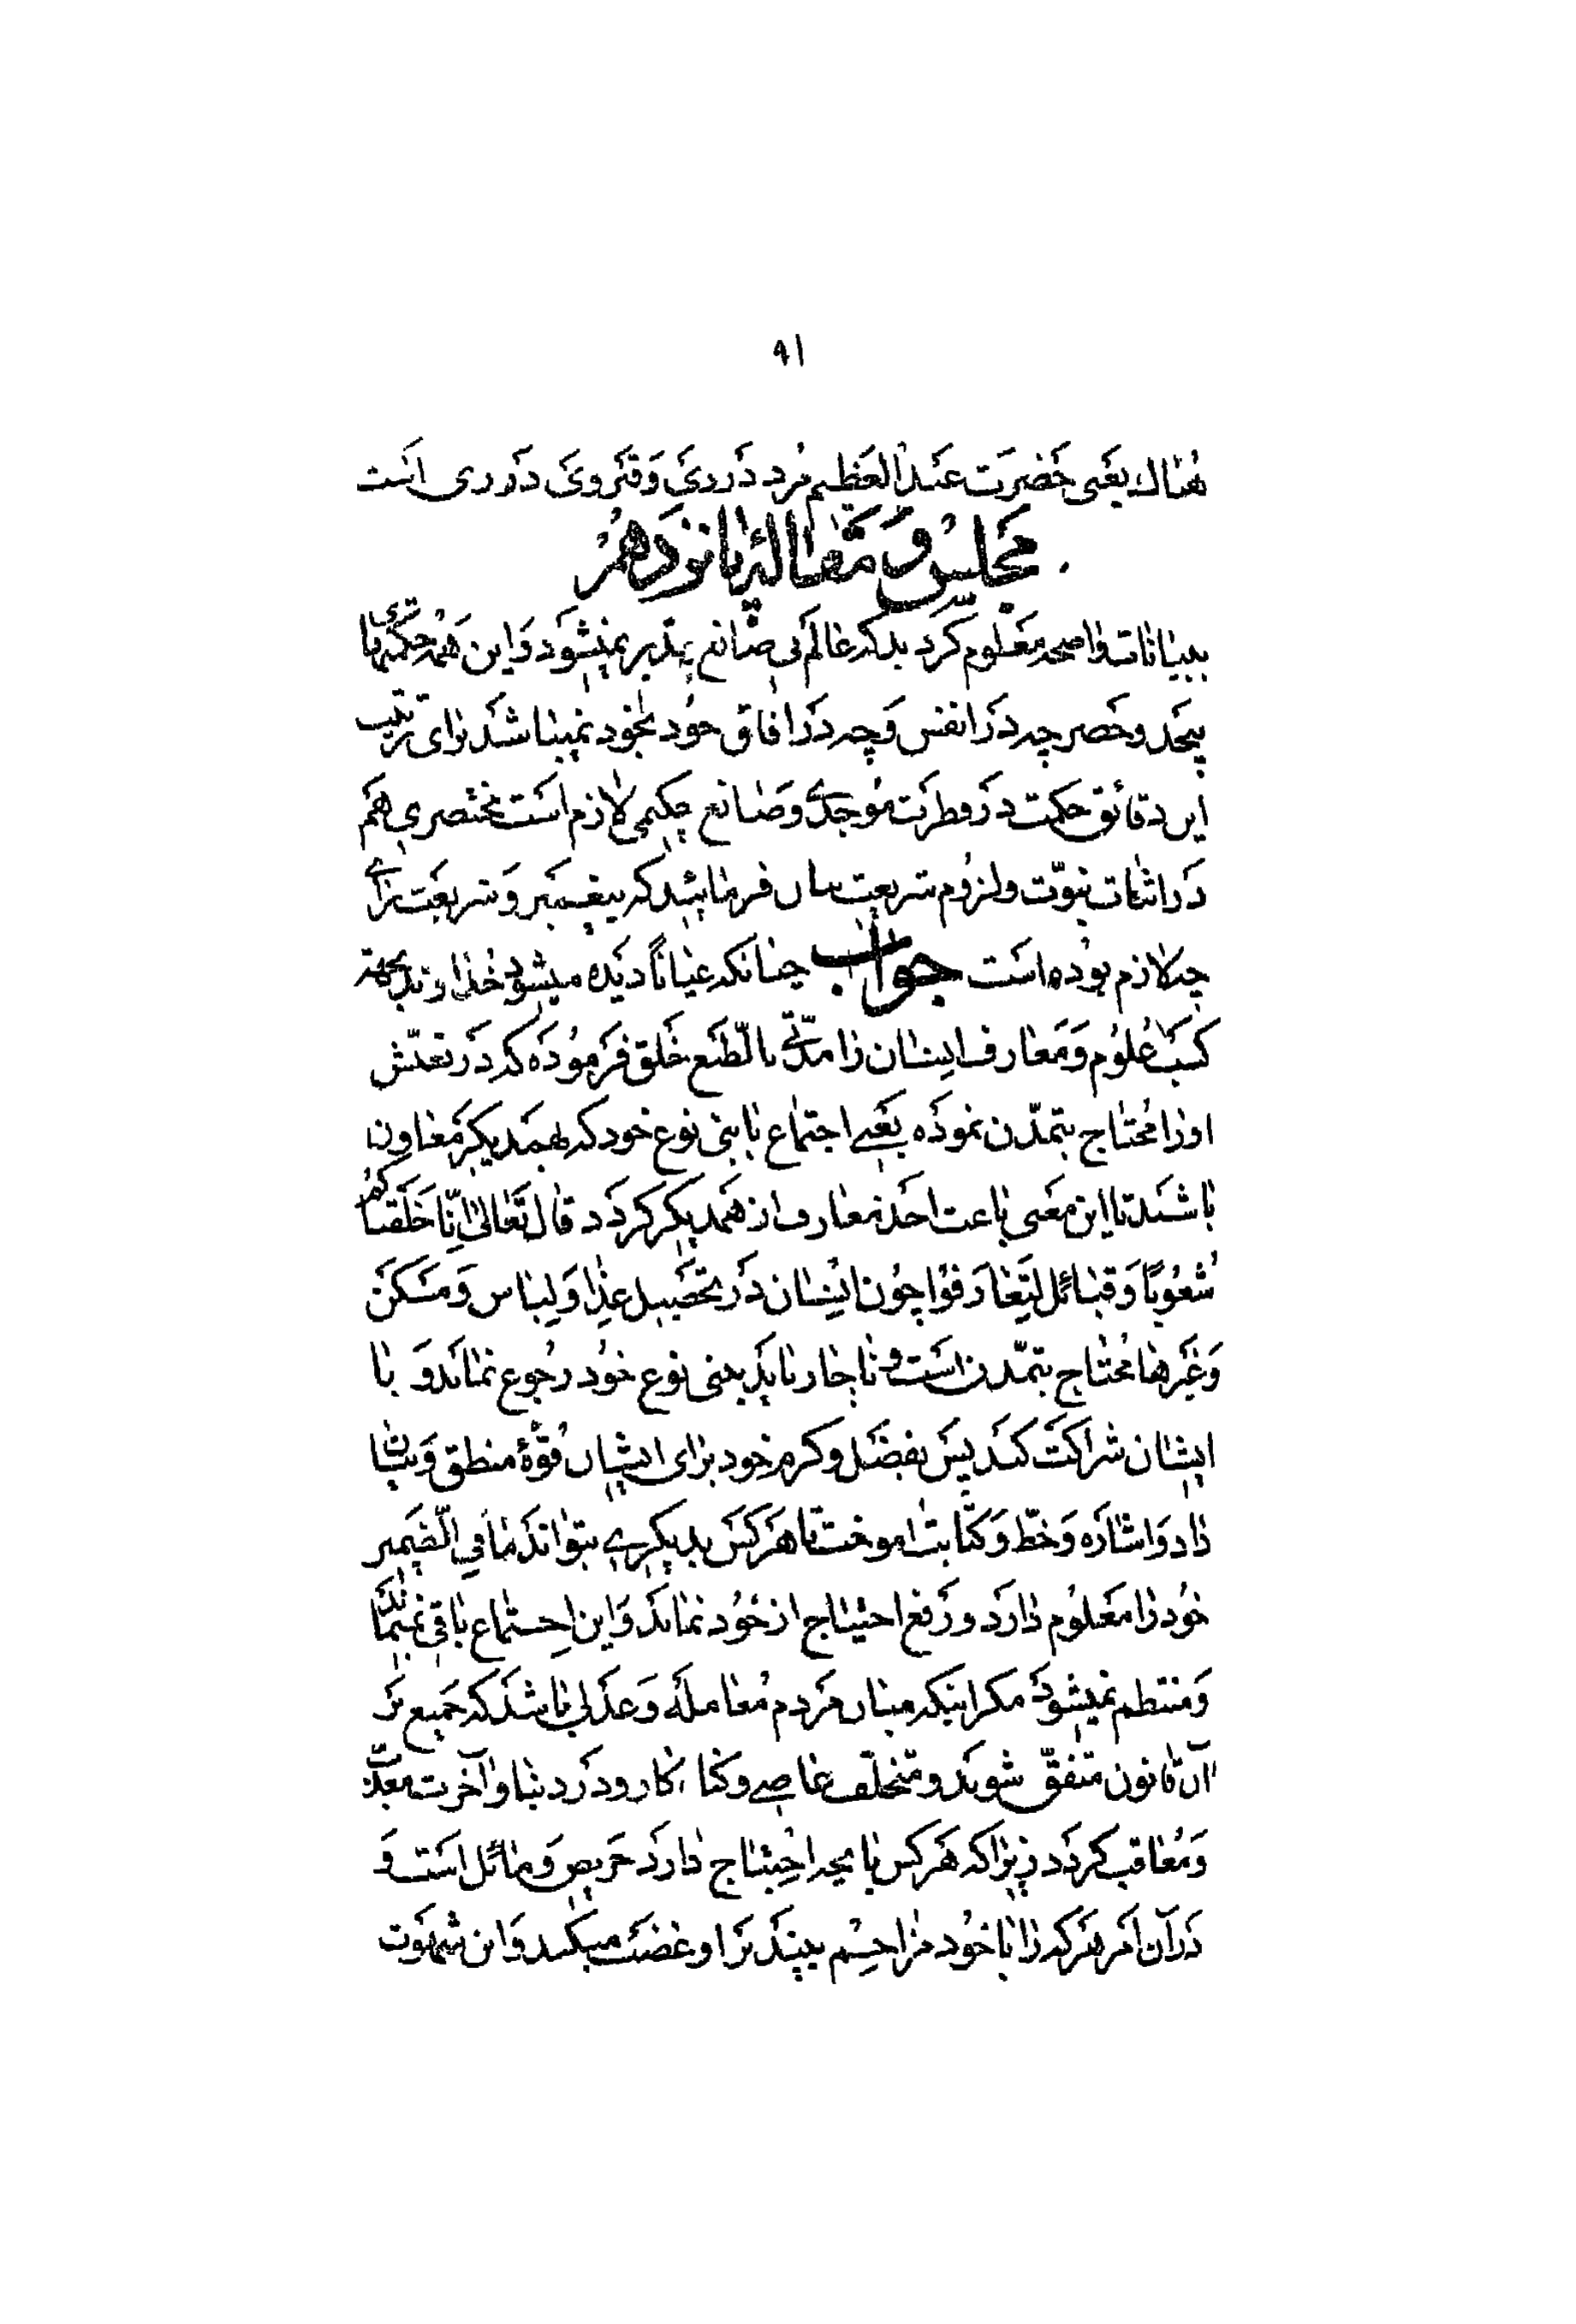 ۹۱
هُناك يعَنى حَضرَت عَبدُ العَظيم مُرد دَر رىَ وَقبَر وىَ دَر رى است
مَجلِسُ وَ مَقالهٔ پانزدَهمُ
ببیانات واضحه مَعَلوم کَرد بد که عالَم بى صٰانع پذیر نمیشَود وَاین هَمه حِکَمتهاى
بیحَد وحَصر چه دَر انفس وَچه دَر افاق خوُد بخود نمیباشد براى ترتیب
این دقائق حکمت دَر فطرَت مُوجدے وصَانع حکیمى لازم است مختصرى هَم
دَر اثبات نبوّت ولزُوم شریعت بیان فرمائید که پیغمبَر وَشریعَت براے
چه لازم بوُده است جواب چنانکه عیاناً دیَده میشود خُداوند بجهة
کسب عُلوُم وَمَعارف ایشان را مدَنّى بالطّبَع خَلق فَرموُدَه که دَر تعیّش
او را مُحتاج بتمدّن نمودَه یعَنے اجتماع با بنى نوع خود که بهمدیکر مَعٰاون
باشنَد تا این مَعَنى باعث اخَذ معٰارف از همَدیکر کردَد قال تَعَالىٰ اِنّا خَلَقناکُم
شُعُوبًا وَقبائل لتَعٰارَفوُا چوُن ایٰشان دَر تحَصیل غِذا وَلِباس وَمَسکَن
وَغَیرها مُحتاج بتمّدن است و ناچار بایَد ببنى نوع خوُد رجُوع نماید وَ با
ایشان شراکَت کنَد پسَ بفضَل وکرم خود براى ایشان قوّهٔ منطق وَبَیان
داد وَاشارَه وَخطّ وَکتابت اموخت تا هَر کسَ بدیکرے بتوانَد مٰا فىِ الضّمِیر
خوُد را مَعَلوُم دارَد و رَفع احتیاج از خوُد نمایَد وَاین اجتماع باقى نمیمٰانَد
وَمنتظم نمیشوَد مکر اینکه میان مَردم مُعاملَه وَعدَلى باشَد که جَمیع بَر
آن قانون متفّق شوند و متخلّف عاصے وکنا، کار و دَر دنیا وآخَرت معذَّب
وَمُعاقب کردَد زیرا که هَر کس بانچه احتیاج دارَد حَریص وَمائل است وَ
دَر آن اَمر هَر که را با خوُد مزاحِم بیند بَر او غضَب میکند وَاین شهَوَت